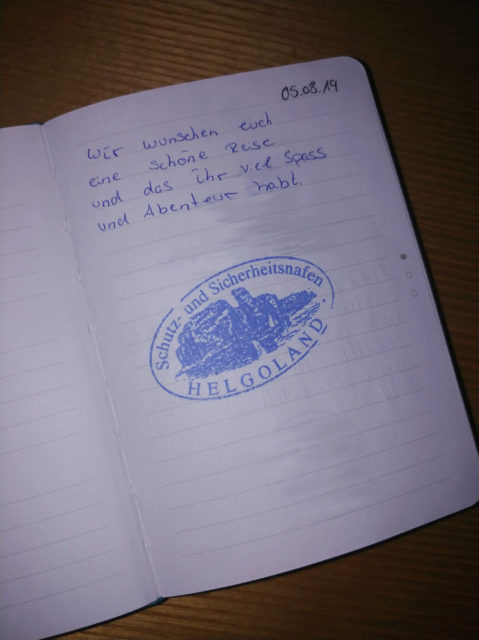 05.08.19
Wir wunschen euch
eine schöne Reise
und das ihr viel Spass
und Abenteur habt.
Schutz- und Sicherheitshafen
HELGOLAND